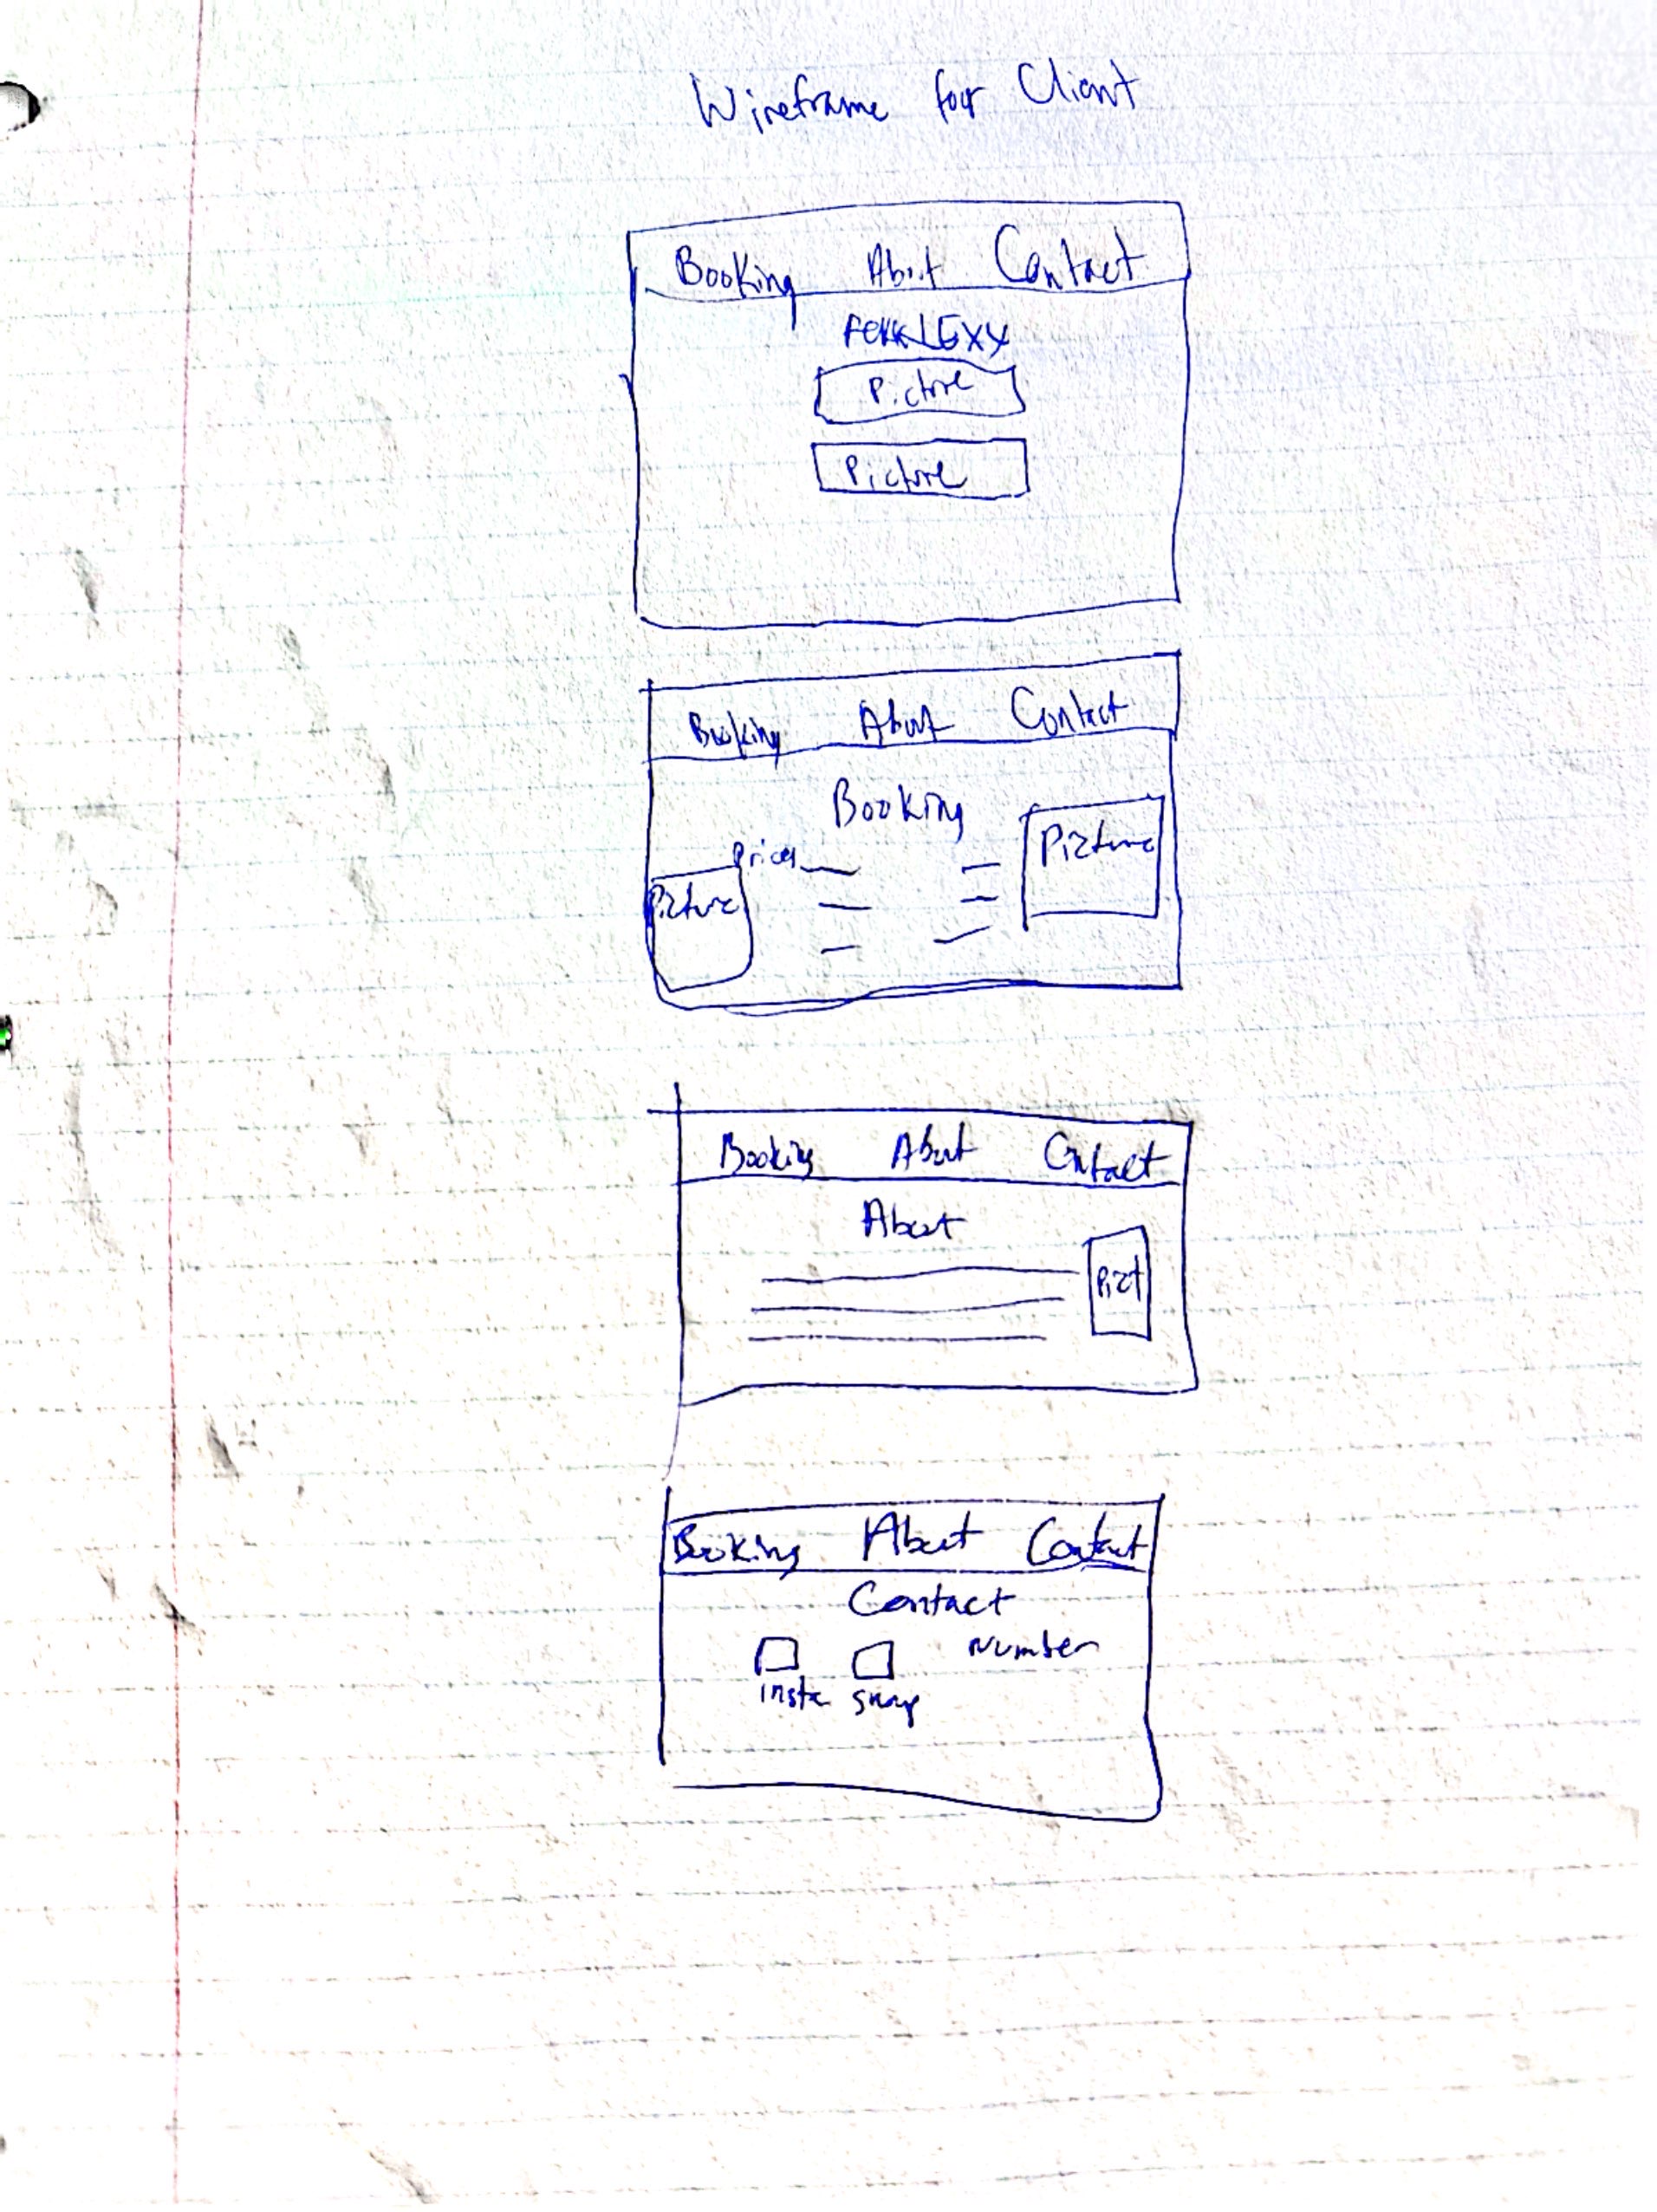 Wireframe for Client
Booking About Contact
Picture
Picture
Booking About Contact
Booking
Prices
Picture
Picture
Booking About Contact
About
Pict
Booking About Contact
Contact
Number
insta snap